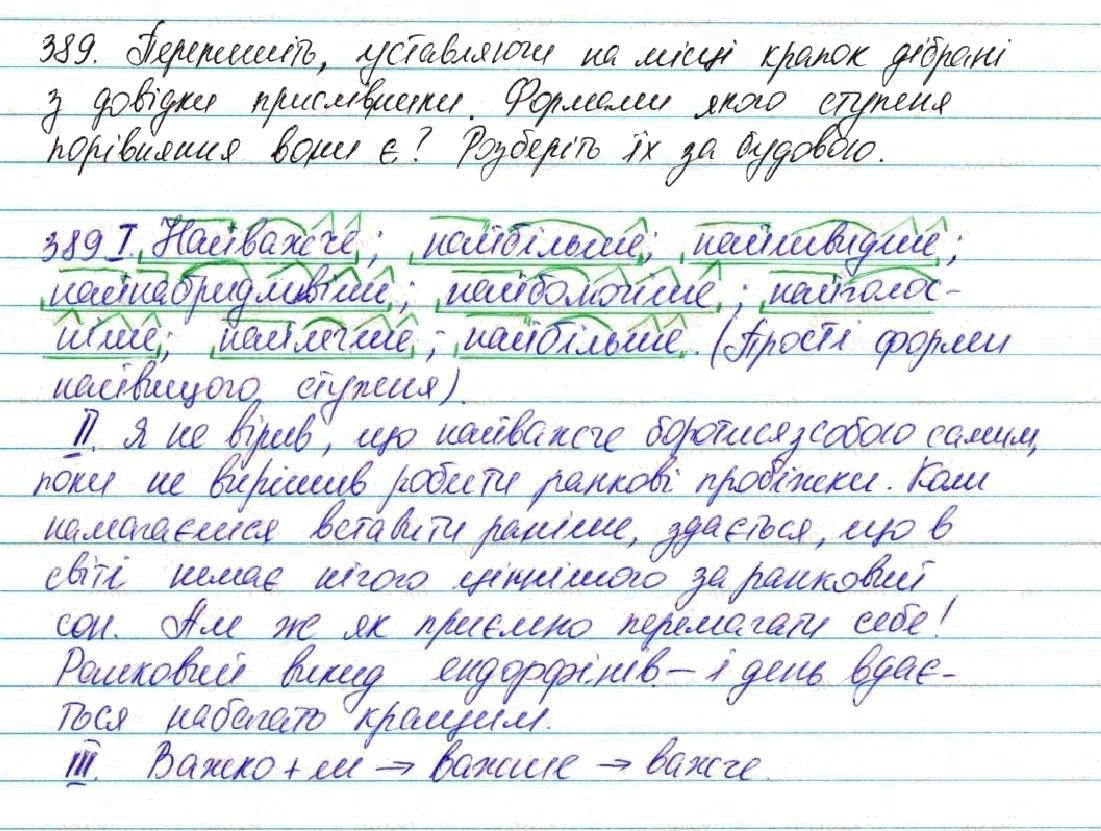 389. Перепишіть, уставляючи на місці крапок дібрані
з довідки прислівники. Формами якого ступеня
порівняння вони є? Розберіть їх за будовою.
389 I. Найважче; найбільше; найшвидше;
найнабридливіше; найболючіше; найголос-
ніше; найлегше; найбільше. (Прості форми
найвищого ступеня).
II. Я не вірив, що найважче боротися з собою самим,
поки не вирішив робити ранкові пробіжки. Коли
намагаєшся вставити раніше, здається, що в
світі немає нічого ціннішого за ранковий
сон. Але ж як приємно перемагати себе!
Ранковий викид ендорфінів – і день вдає-
ться набагато кращим.
III. Важко + ш → важше → важче.